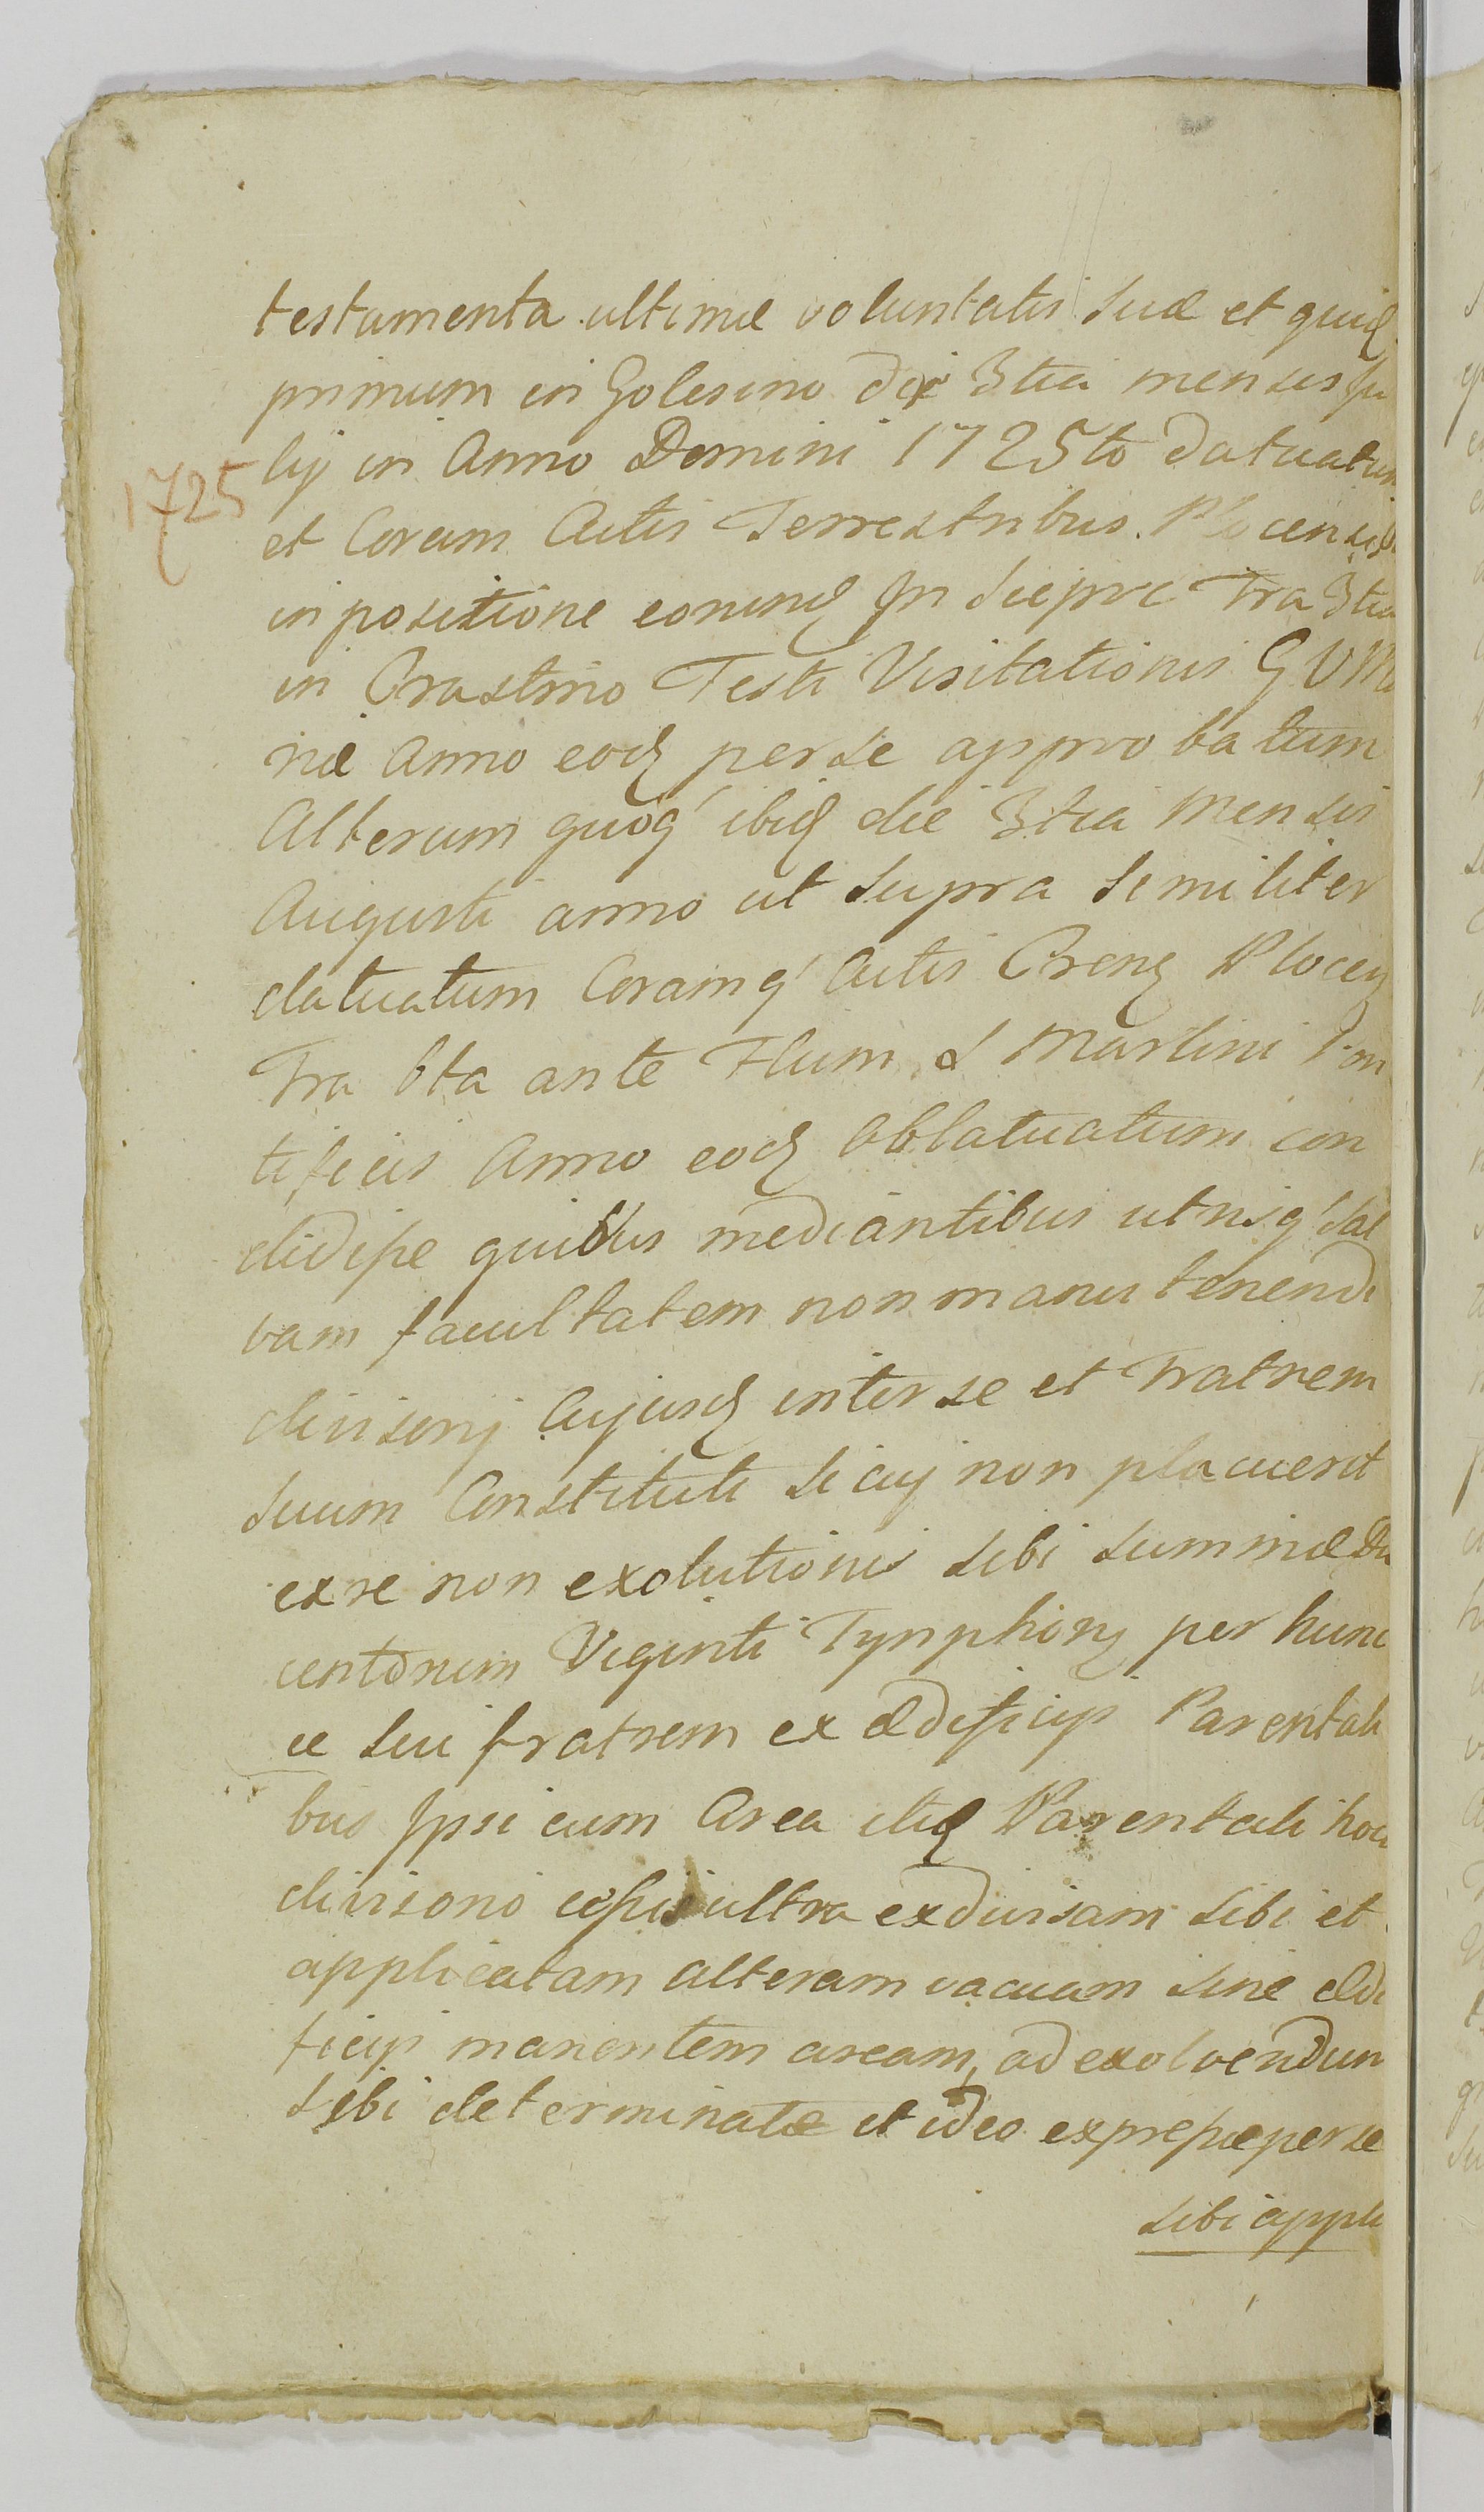 testamenta ultimæ voluntatis suæ et quid
primum in Golesino die 3tia mensis Ju
lij in Anno Domini 1725to datuatum
1725
et Coram Actis Terrestribus Plocensib
in positione eorund In Sierpc Fra 3tia
in Crastino Festi Visitationis G V Ma
riæ Anno eod per se approbatum
Alterum quoq' ibid die 3tia Mensis
Augusti anno ut supra similiter
datuatum Coramq' Actis Cren Plocen
Fra 6ta ante Ffum S Martini Pon
tificis Anno eod oblatuatum con
didisse quibus mediantibus utrisq' sal
vam facultatem non manu tenendi
divisonj cujusd inter se et Fratrem
suum Constituti si cuj non placuerit
ex re non exolutionis sibi summæ Du
centorum Viginti Tynphion per hunc
ce sui fratrem ex ædificijs Parentali
bus Ipsi cum Area itid Parentali hoc
divisono ultra exdivisam sibi et
applicatam alteram vacuam sine ædi
ficijs manentem aream, ad exolvendum
sibi determinatæ et ideo expresse per se
sibi appli